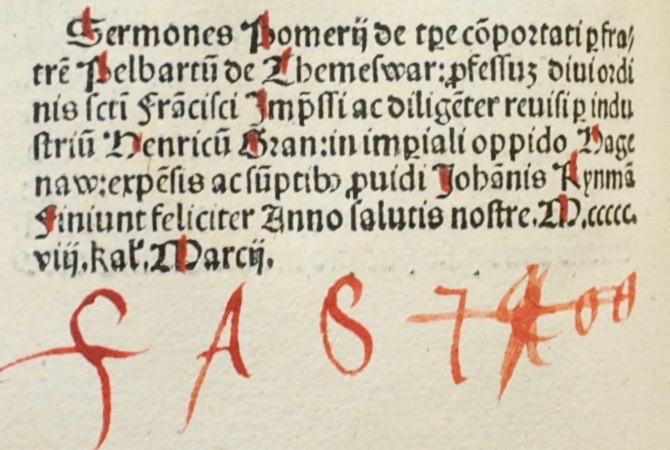 Sermones Pomerij de tꝑe cōportati ꝑ fra/
trē Pelbartū de Themeswar: ꝓfessuȝ diui ordi
nis scti Frācisci Imp̄ssi ac diligēter reuisi ꝑ indu
striū Henricū Gran: in imꝑiali oppido Hage
naw: expēsis ac sūptibꝰ ꝓuidi Johānis Rynmā
Finiunt feliciter Anno salutis nostre. M.ccccc.
viij. kal. Marcij.